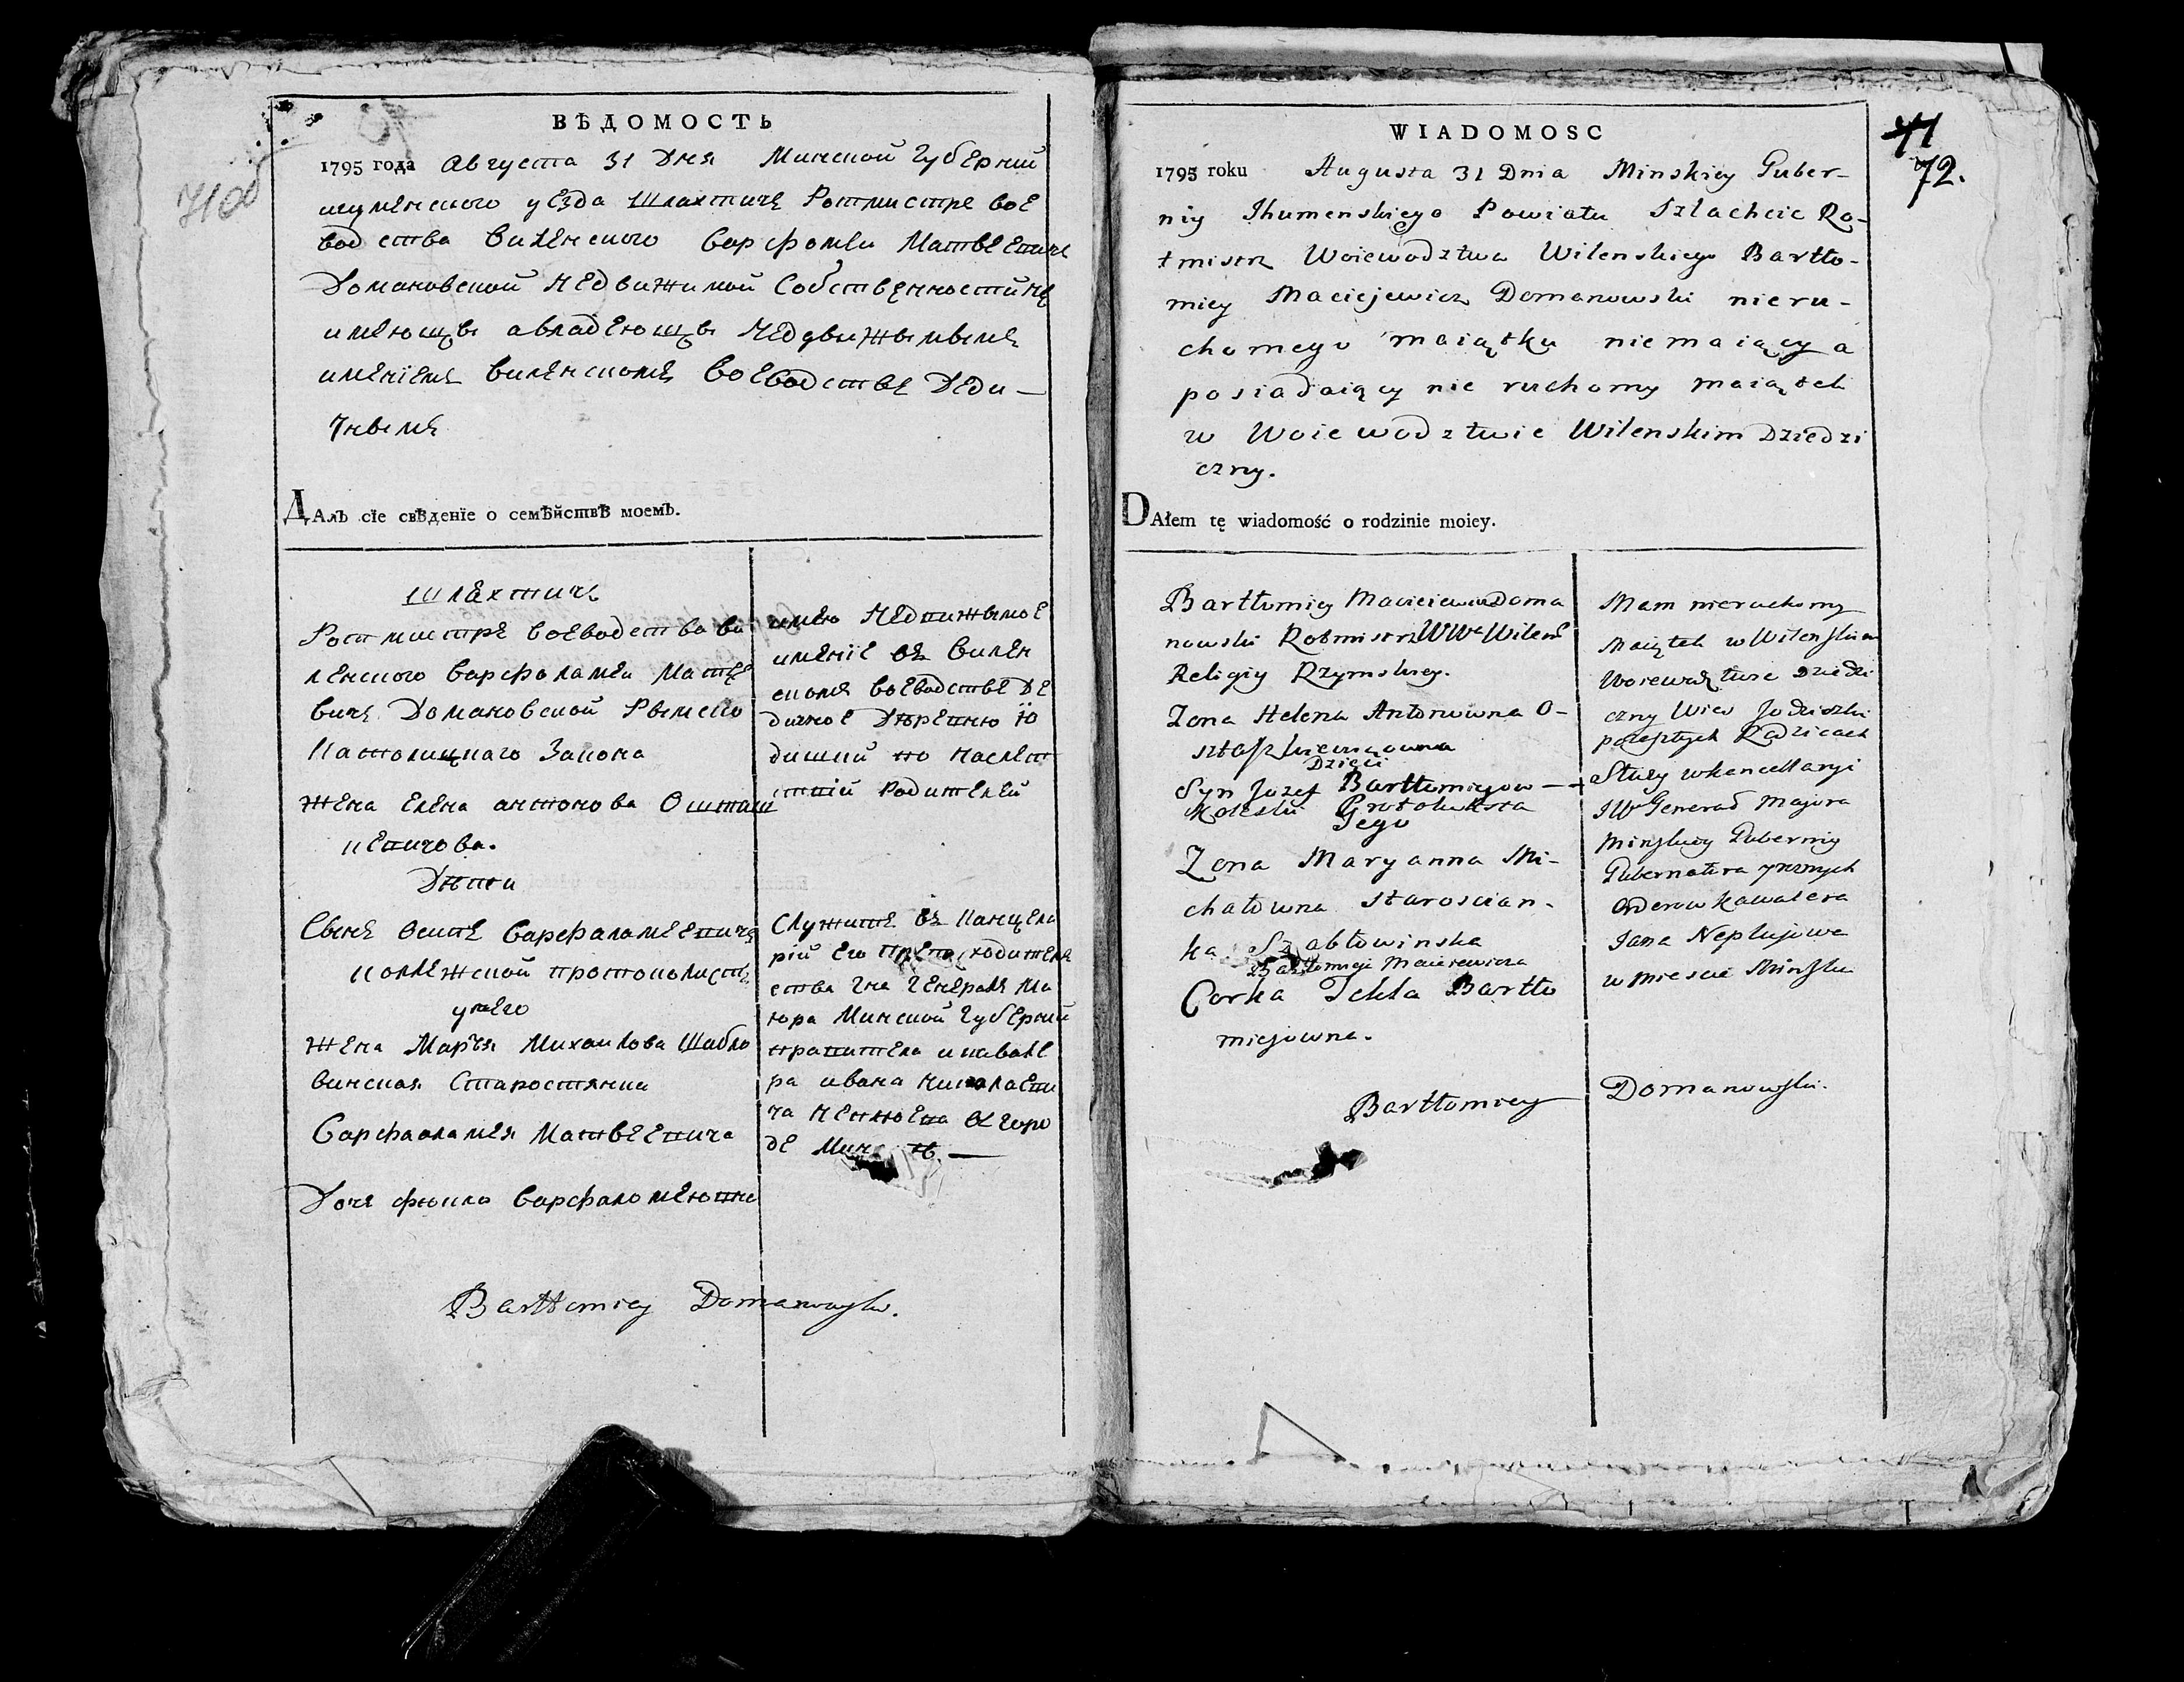 71об
ВѢДОМОСТЬ
1795 года Августа 31 Дня Минской Губерній
игуменского уезда Шляхтичъ Ротмистръ Вое
водства Виленского Варфомеи Матвеевичъ
Домановской недвижимой Собственности нъ
имеющы авладеющы Недвыжымымъ
именіемъ виленскомъ Воеводстве Деди-
чнымъ
ДАлъ сїе свѣденїе о семѣйствѣ моемъ.
Шляхтичъ
Ротмистръ Воеводства ви
ленского Варфаламеи Матве
вичъ Домановской Рымско
Католицкаго Закона
Жена Елена антонова Ошташ
кевичова.
Дѣти
Сынъ Осипъ Варфаламеевичъ
колежской протоколистъ
у него
Жена Марья Михаилова Шабло
винская Старостянка
Варфаламея Матвеевича
Дочь фюкла Варфаламеювна
имею Недвижымое
именіе въ Вилен
скомъ воеводстве Де
дичное
по наслет
Родителей
Служитъ въ Канцеля
ріи Его Превосходитель
ства Гна Генерала Ма
юра Минской Губерніи
правителя и кавале
ра ивана николаеви
ча Неплюева въ горо
де Минскѣ.
Bartłomiey Domanowski.
71
72.
WIADOMOSC
1795 roku Augusta 31 Dnia Minskiey Guber-
niy Ihumenskiego Powiatu Szlachcic Ro-
tmistrz Woiewodztwa Wilenskiego Bartło-
miey Maciejewicz Domanowski nieru-
chomego maiątku niemaiący a
posiadaiący nie ruchomy maiątek
w Woiewodztwie Wilenskim Dziedzi
czny.
DAłem tę wiadomość o rodzinie moiey.
Bartłomiey Macieiewicz Doma
nowski Rotmistrz WWa Wilens
Religiy Rzymskiey.
Zona Helena Antonowna O-
sztaszkiewiczowna
Dzieci
Syn Jozef Bartłomieyow-
Koleski Protokolista
Jego
Zona Maryanna Mi-
chałowna Staroscian-
ka Szabłowinska
Bartłomieja Maciejewicza
Corka Tekla Bartło
miejowna.
Mam nieruchomy
Maiątek w Wilenskim
Woiewodztwie Dziedzi
czny Wies Jodziszki
po zeszłych Rodzicach
Służy w kancellaryi
JW Generał Majora
Minskiey Guberniy
Gubernatora roznych
Orderow Kawalera
Jana Neplujowa
w miescie Minsku
Bartłomiey Domanowski.